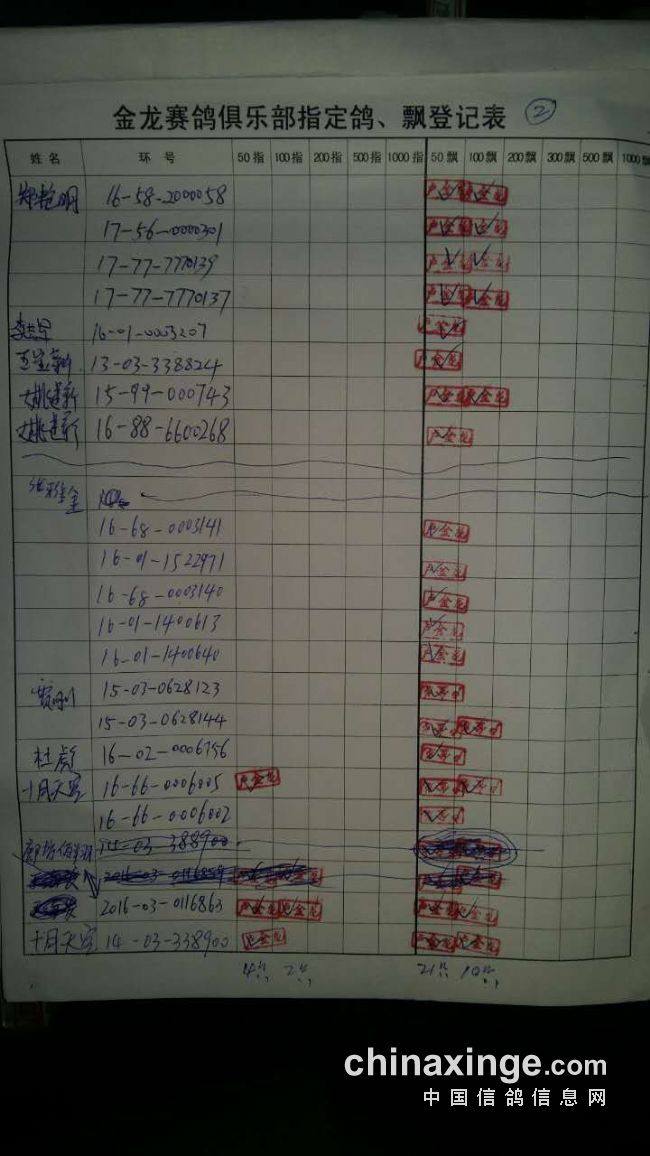 金龙赛鸽俱乐部指定鸽、飘登记表 ②
姓名 环号 50指 100指 200指 500指 1000指 50飘 100飘 200飘 300飘 500飘 1000飘
郑艳明 16-58-2000058 卢金龙 卢金龙
17-56-0000301 卢金龙 卢金龙
17-77-7770139 卢金龙 卢金龙
17-77-7770137 卢金龙 卢金龙
16-01-0003207 卢金龙
13-03-338824 卢金龙
15-99-000743 卢金龙 卢金龙
16-88-6600268 卢金龙
16-68-0003141 卢金龙
16-01-1522971 卢金龙
16-68-0003140 卢金龙
16-01-1400613 卢金龙
16-01-1400640 卢金龙
15-03-0628123
15-03-0628144
杜彪 16-02-0006756
十月天宫 16-66-0006005 卢金龙
16-66-0006002
14-03-388900
2016-03-0116859
2016-03-0116863 卢金龙 卢金龙 卢金龙 卢金龙
十月天宫 14-03-338900 卢金龙 卢金龙 卢金龙
chinaxinge.com
中国信鸽信息网